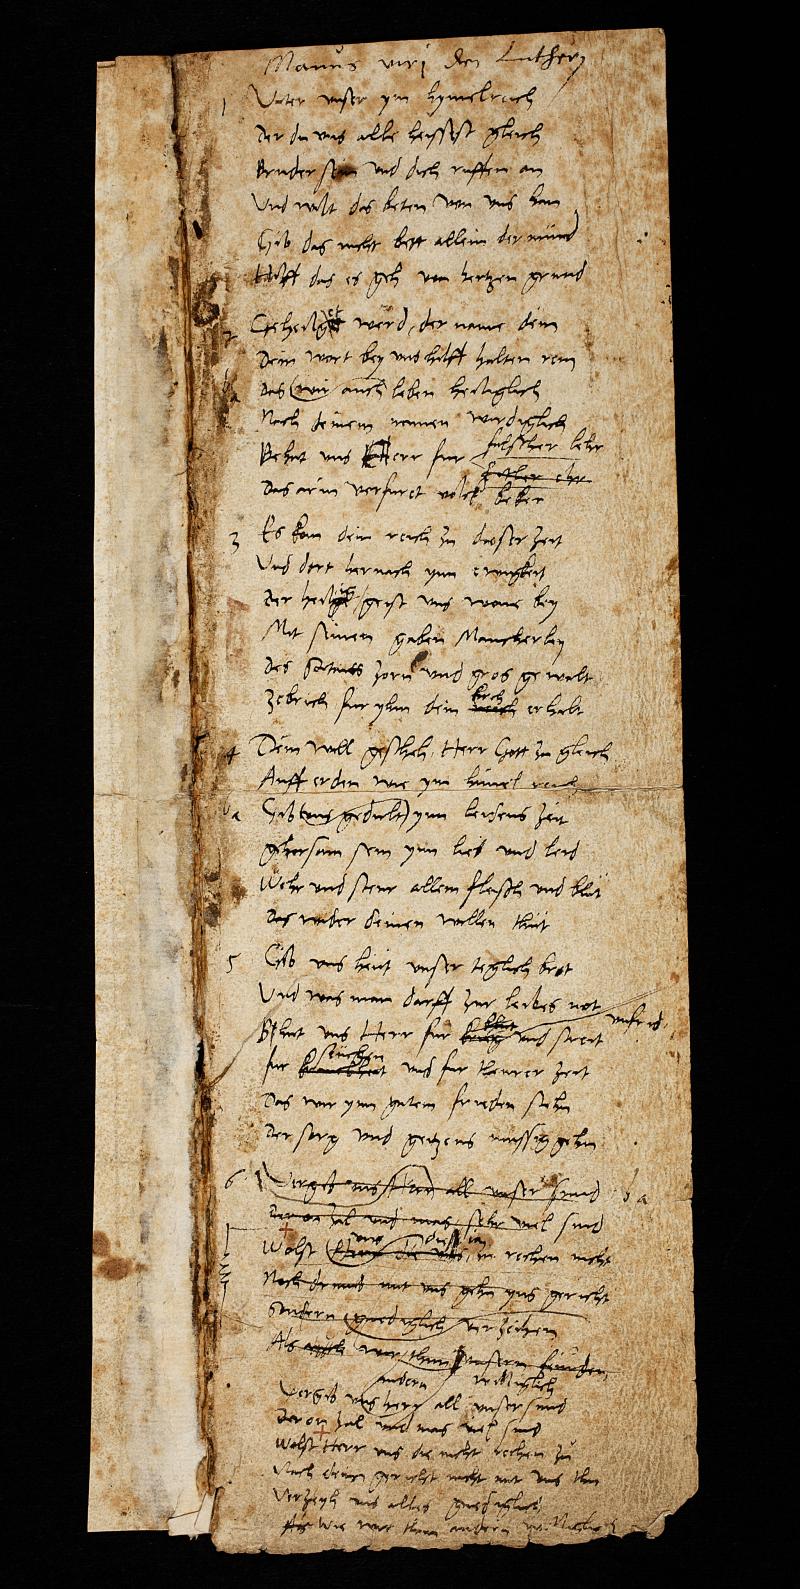 Manus viri dei Lutherj
1 Vater unser ym hymelreich
Der du uns alle heissest gleich
Bruder sein und dich ruffen an
Und wilt das beten von uns han
Gib das nicht bett allein der mund
Hilff das es geh von hertzen grund
2 Geheiliget werd, der name dein
Dein wort bey uns hilff halten rein
b a Das (wir auch leben heiliglich
Nach deinem namen wirdiglich
falscher lehr
Behut uns Herr fur
Das arm verfuret volck beker
3 Es kom dein reich zu dieser zeit
Und dort hernach ynn ewigkeit
Der heilig geist uns wone bey
Mit seinen gaben Mancherley
Des Satans zorn und gros gewalt
kirch
Zebrich fur yhm dein erhalt
4 Dein will gescheh, Herr Gott zu gleich
Auff erden wie ym himel reich
b a Gib (uns gedult) ynn leidens zeit
gehorsam sein ynn lieb und leid
Wehr und steur allem fleisch und blut
Das wider deinen willen thut
5 Gib uns heut unser teglich brot
Und was man darff zur leibes not
unfrid
Behut uns Herr fur und streit
seuchen
fur und fur theurer zeit
Das wir ynn gutem frieden stehn
Der sorg und geitzens mussig gehn
6 Vergib uns Herr all unser sund b a
Der on zal und mas sehr viel sind
Wolst die uns, rechen nicht
Noch damit mit uns gehn yns gericht
Sondern gnediglich verzeihen
Als wir thun unsern
andern williglich
Vergib uns herr all unser sund
Der on zal und mas viel sind
Wolst Herr uns die nicht rechen zu
Nach deim gericht nicht mit uns thu
Verzeyh uns alles gnediglich
Wie wir thun andern